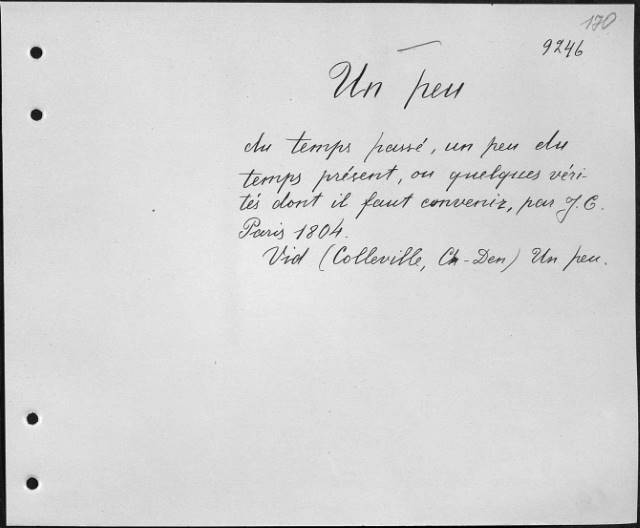 170
9246
Un peu
du temps passé, un peu du
temps présent, ou quelques véri-
tés dont il faut convenir, par J. C.
Paris 1804.
Vid (Colleville, Ch-Den) Un peu.